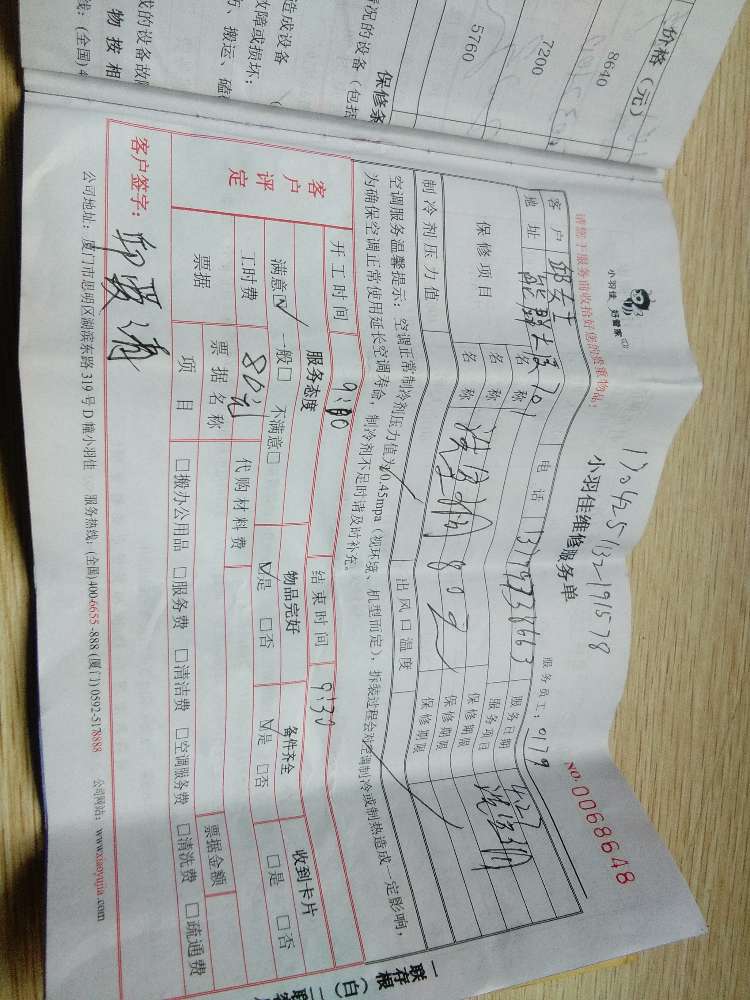 价格（元）
8640
7200
5760
保修条
情况的设备（包括
造成设备
故障或损坏；
方、搬运、磕
成的设备故障
物按相
线：(全国)4
小羽佳 好管家
请您于服务前收拾好您的贵重物品！
170425-132-191578
小羽佳维修服务单
服务员工：0179
NO. 0068648
客户
电话
服务日期 4.27
地址
701
服务项目
保修项目
名称
保修期限
名称
80元
保修期限
名称
保修期限
制冷剂压力值
出风口温度
空调服务温馨提示：空调正常制冷剂压力值为0.45mpa（视环境、机型而定），拆装过程会对空调制冷或制热造成一定影响，
为确保空调正常使用延长空调寿命，制冷剂不足时请及时补充。
开工时间 9:00
结束时间 9:30
客户评定
服务态度
物品完好
备件齐全
收到卡片
满意☑ 一般□ 不满意□
☑是 □否
☑是 □否
□是 □否
工时费 80元
代购材料费
票据
票据名称
票据金额
项目
□搬办公用品 □服务费 □清洁费 □空调服务费 □清洗费 □疏通费
客户签字：
公司地址：厦门市思明区湖滨东路319号D幢小羽佳 服务热线：(全国)400-6655-888 (厦门) 0592-5178888 公司网站：www.xiaoyujia.com
一联存根（白）二联客